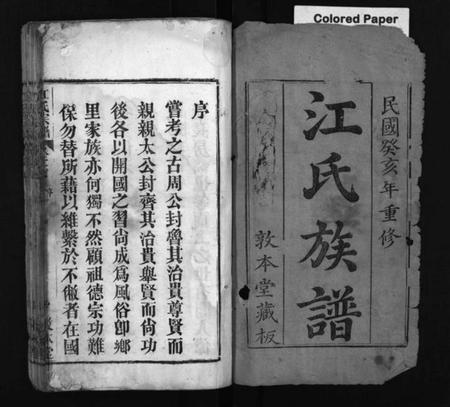 Colored Paper
民國癸亥年重修
江氏族譜
敦本堂藏板
序
嘗考之古周公封魯其治貴尊賢而
親親太公封齊其治貴舉賢而尚功
後各以開國之習尚成爲風俗卽鄉
里家族亦何獨不然顧祖德宗功難
保勿替所藉以維繫於不敝者在國